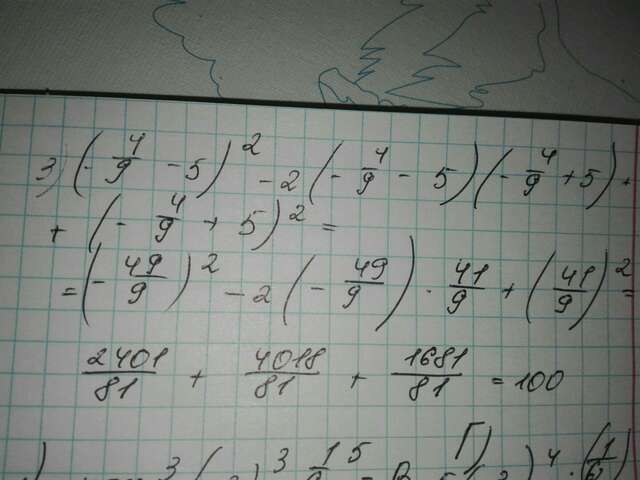 3) (- 4/9 - 5)² - 2 (- 4/9 - 5) (- 4/9 + 5) +
+ (- 4/9 + 5)² =
= (- 49/9)² - 2 (- 49/9) · 41/9 + (41/9)² =
2401/81 + 4018/81 + 1681/81 = 100